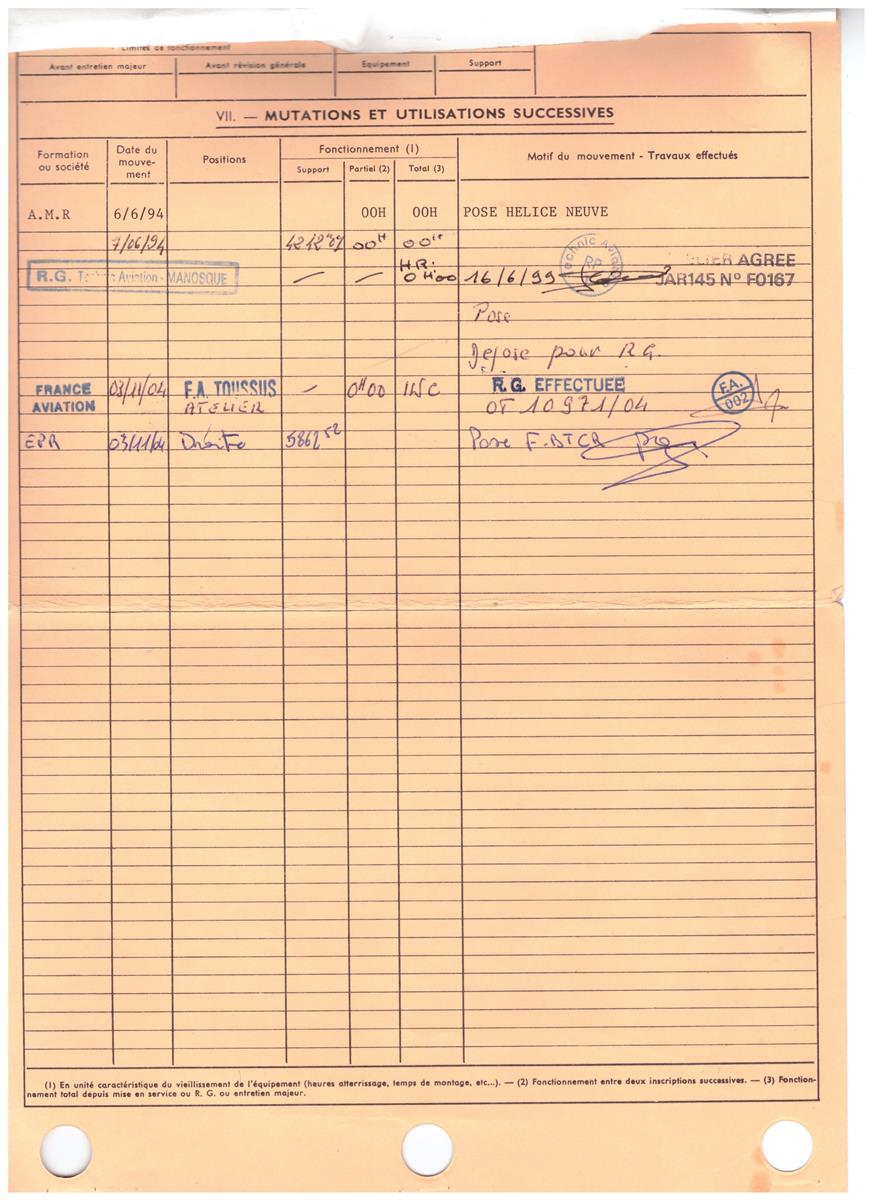 Limites de fonctionnement
Avant entretien majeur Avant révision générale Equipement Support
VII. — MUTATIONS ET UTILISATIONS SUCCESSIVES
Formation ou société
Date du mouve-
ment
Positions
Fonctionnement (1)
Support Partiel (2) Total (3)
Motif du mouvement - Travaux effectués
A.M.R 6/6/94 00H 00H POSE HELICE NEUVE
7/06/94 4242 07 00H 00H
R.G. Technic Aviation - MANOSQUE — — H.R: 0H00 16/6/99 Technic Aviation RP AGREE
JAR145 N° F0167
Pose
Depose pour R.G.
FRANCE AVIATION 03/11/04 F.A. TOUSSUS — 0H00 INC R.G. EFFECTUEE F.A. 002
ATELIER OT 10971/04
EPR 03/11/04 Droite 5862 52 Pose F.BTCR
(1) En unité caractéristique du vieillissement de l'équipement (heures atterrissage, temps de montage, etc...). — (2) Fonctionnement entre deux inscriptions successives. — (3) Fonction-
nement total depuis mise en service ou R. G. ou entretien majeur.